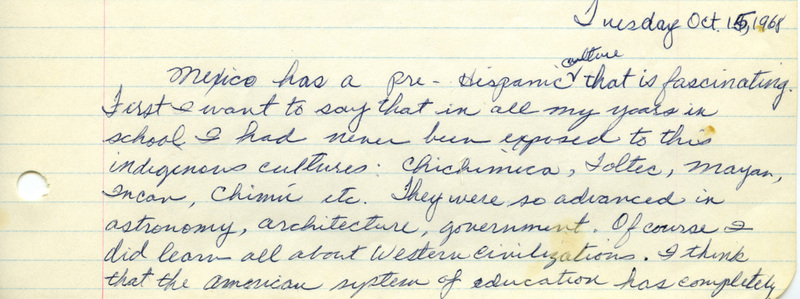 Tuesday Oct. 15, 1968
culture
Mexico has a pre-Hispanic that is fascinating.
First I want to say that in all my years in
school I had never been exposed to this
indigenous cultures: Chichimica, Toltec, Mayan,
Incan, Chimú etc. They were so advanced in
astronomy, architecture, government. Of course I
did learn all about Western Civilizations. I think
that the American system of education has completely